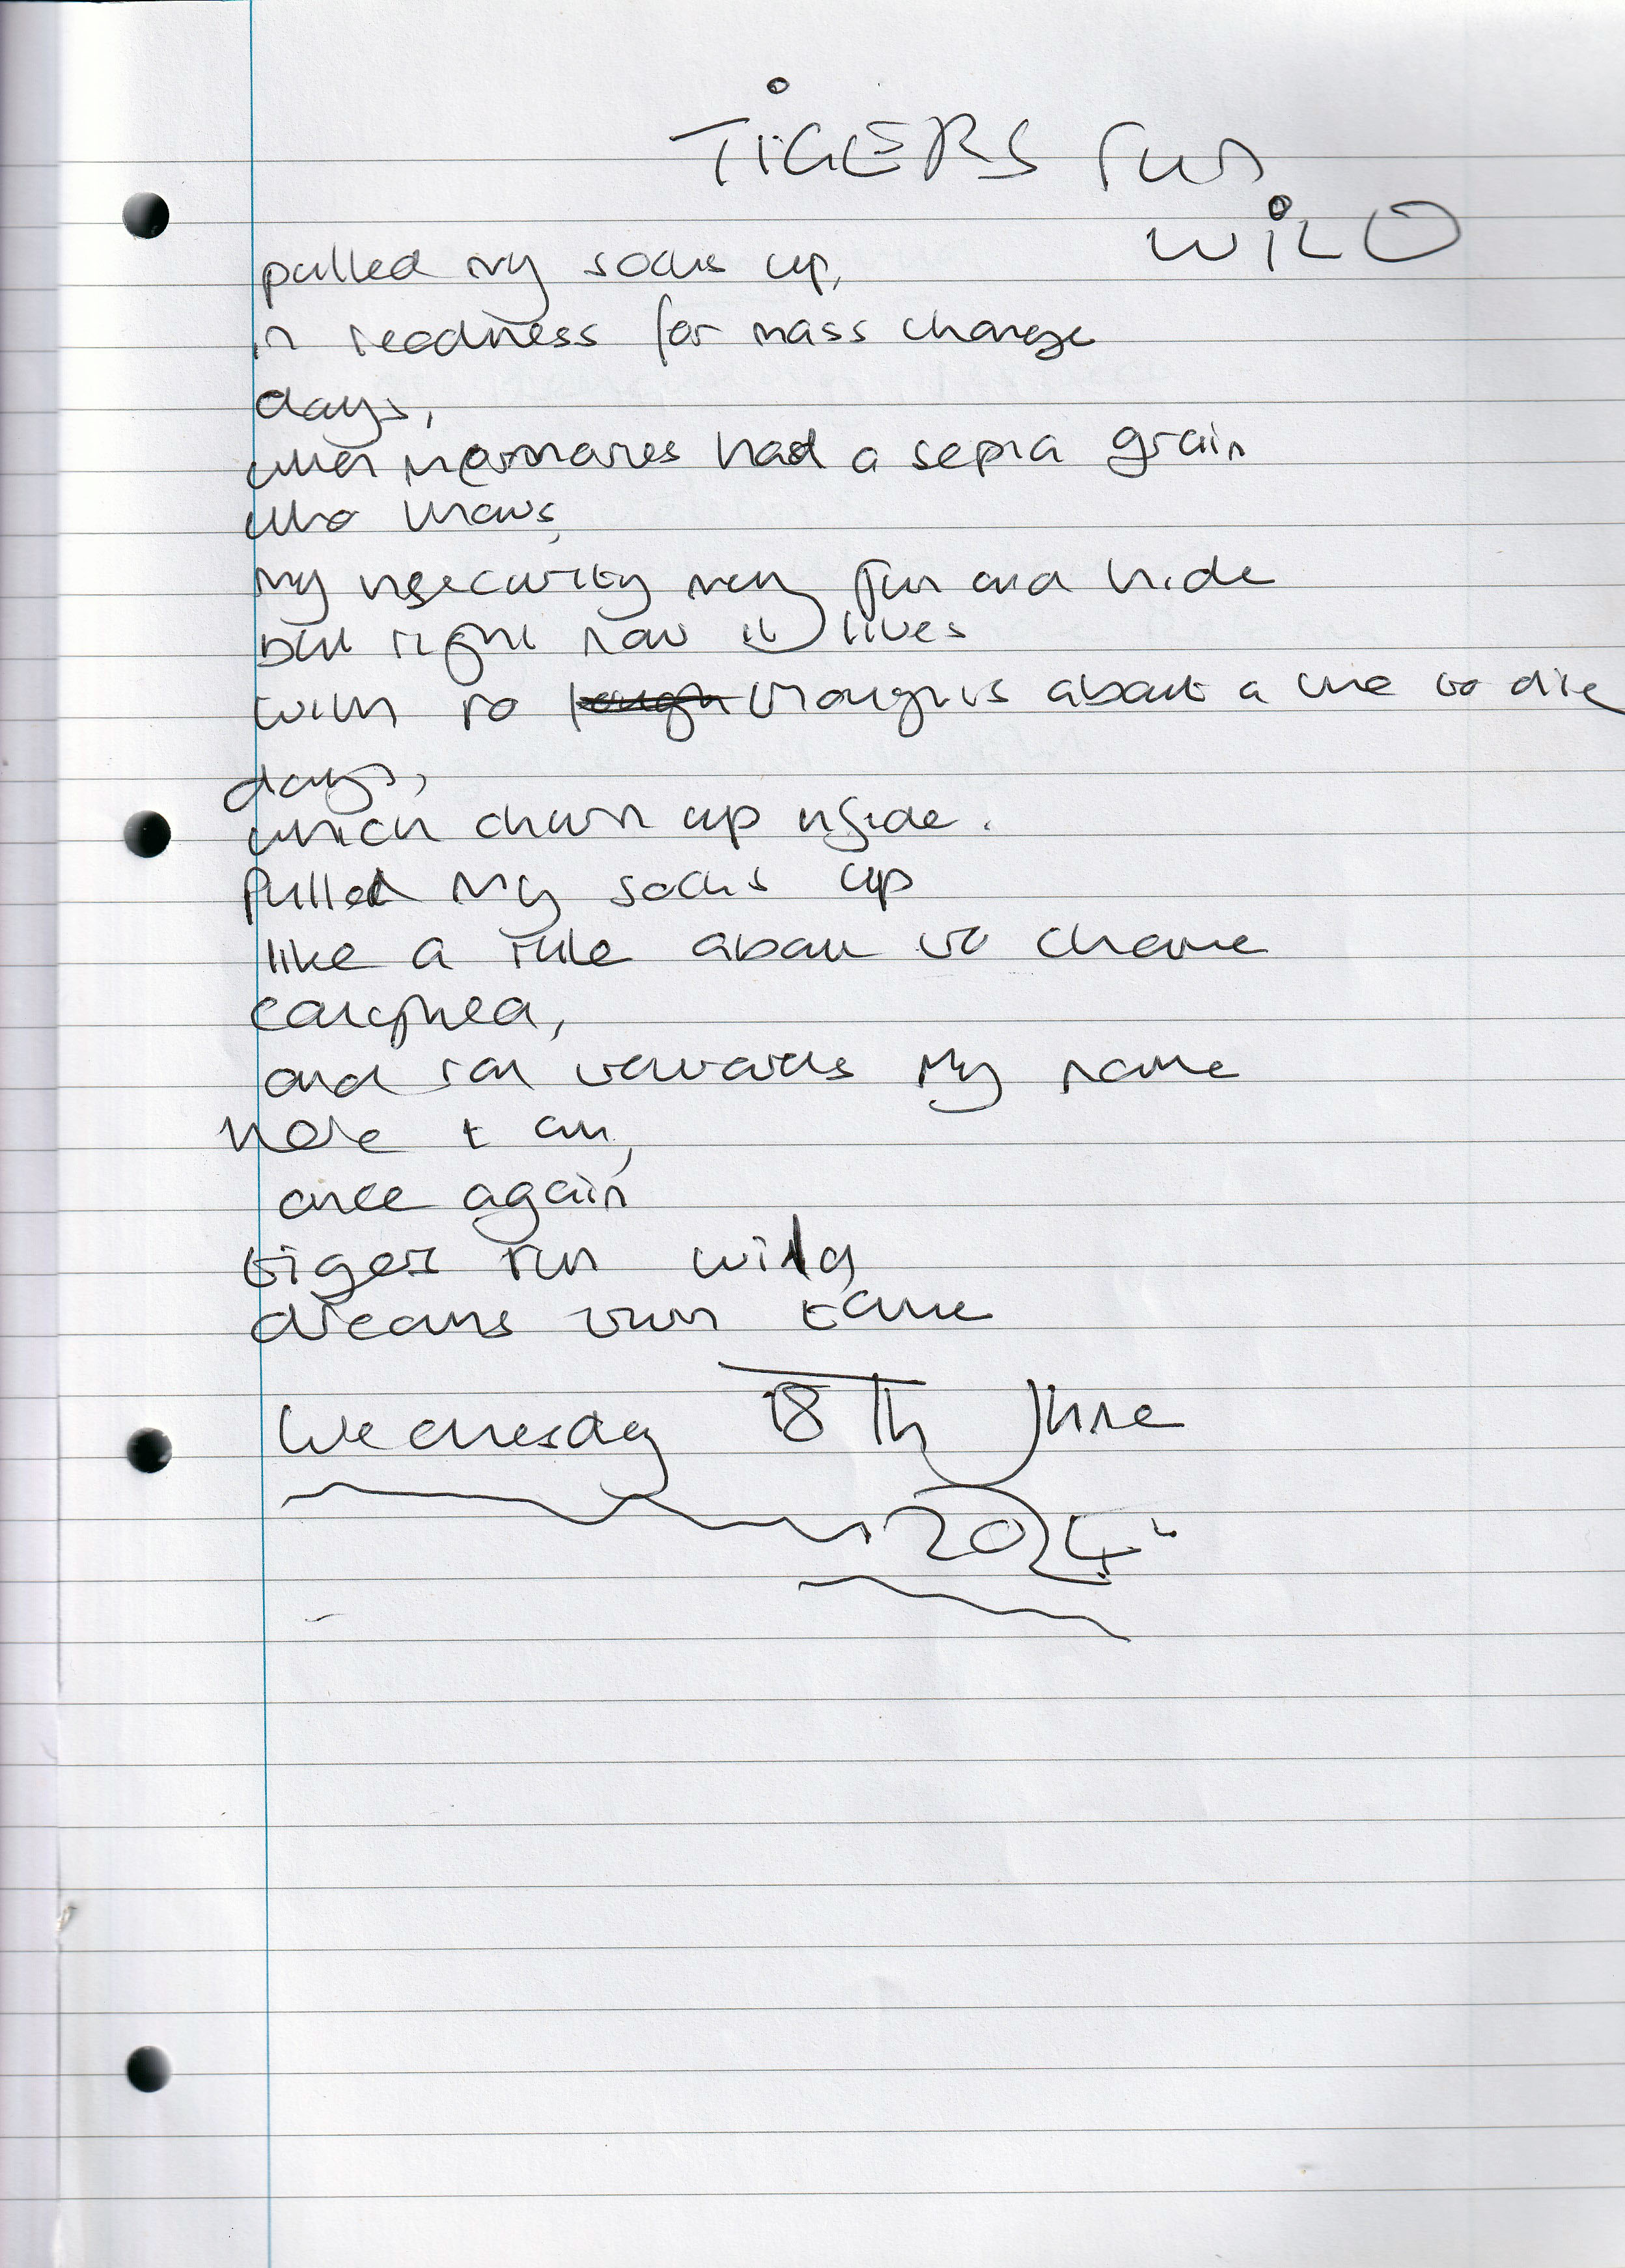 TiGERS run
WiLD
pulled my socks up,
in readness for mass change
days,
when memories had a sepia grain
who knows,
my insecurity may run and hide
but right now it lives
with no thoughts about a time to die
days,
which churn up inside.
Pulled my socks up
like a rule about to change
and ran towards my name
here I am,
once again
tigers run wild,
dreams run tame
Wednesday 18Th June
2024